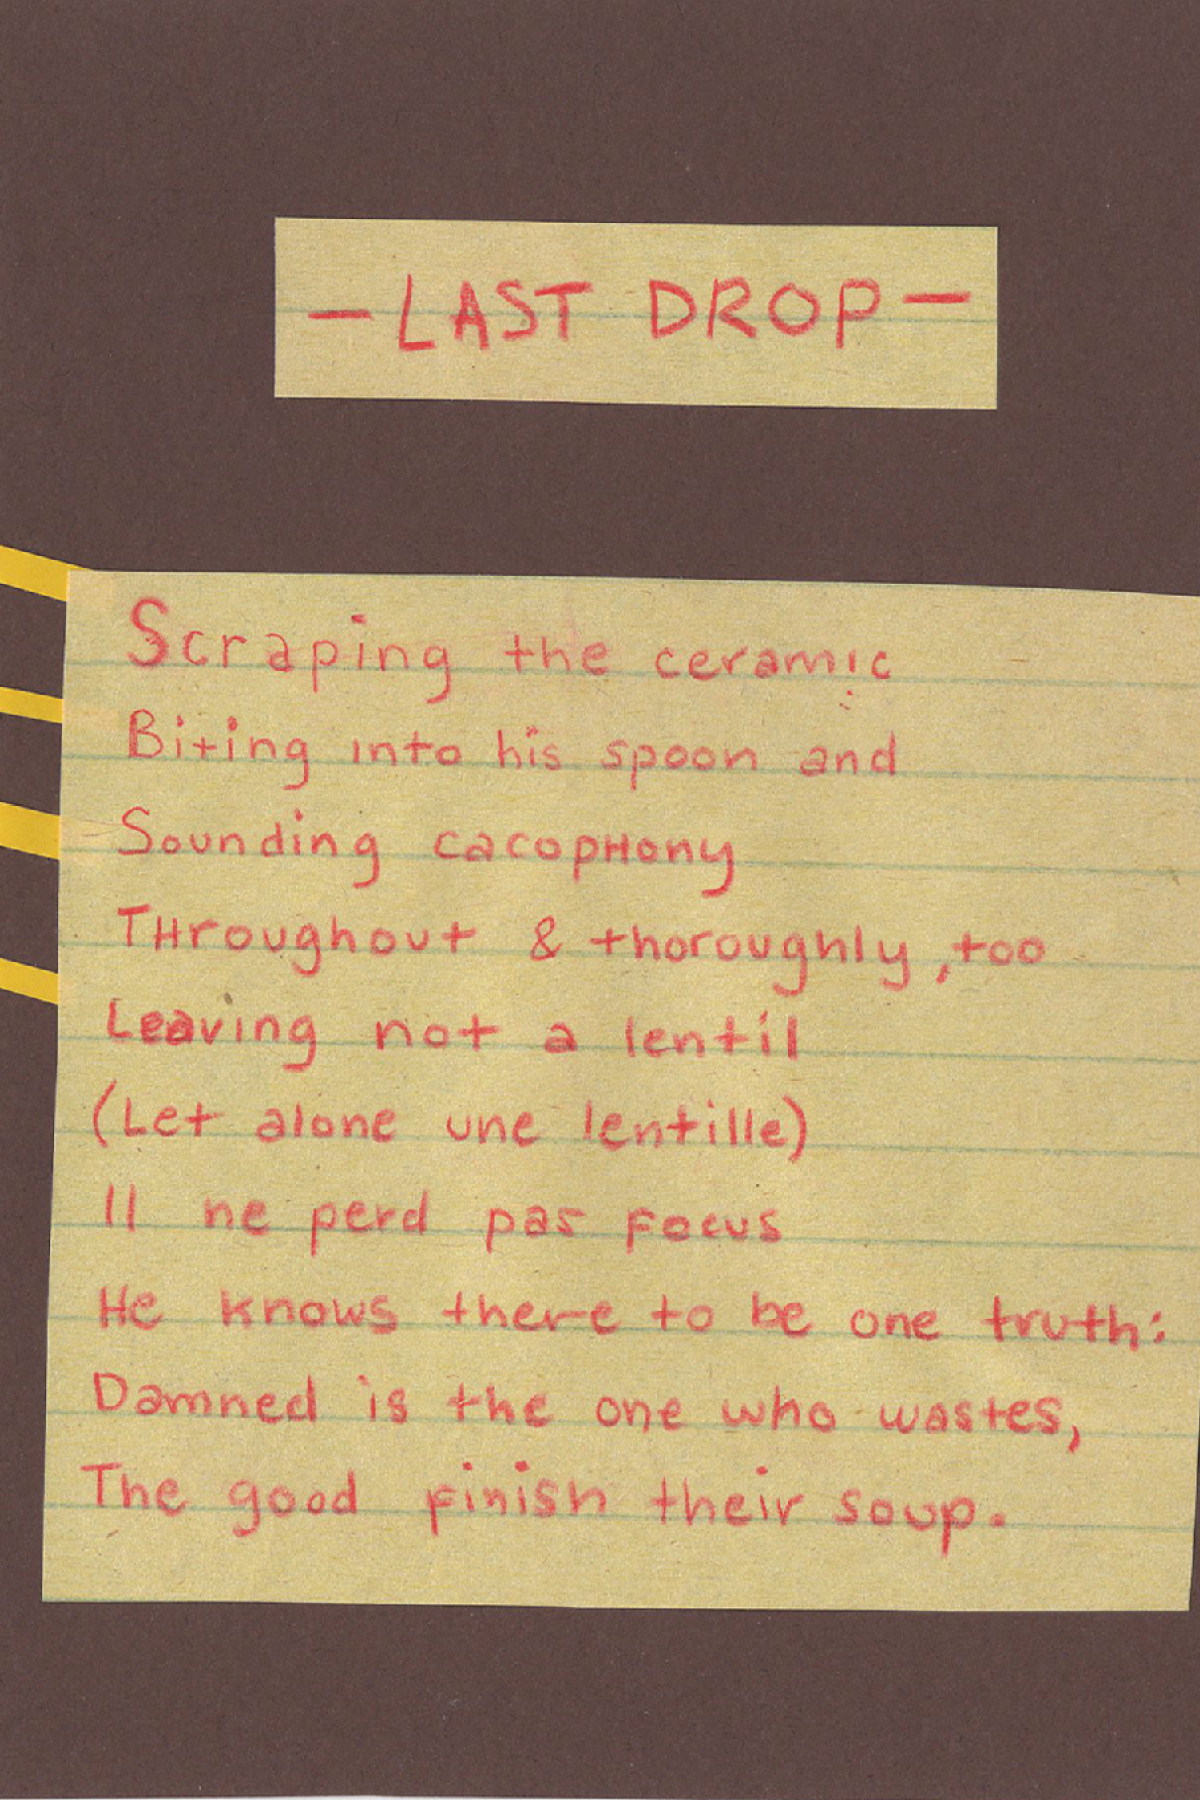 — LAST DROP —
Scraping the ceramic
Biting into his spoon and
Sounding cacopHony
THroughout & thoroughly, too
Leaving not a lentil
(Let alone une lentille)
Il ne perd pas focus
He knows there to be one truth:
Damned is the one who wastes,
The good finish their soup.